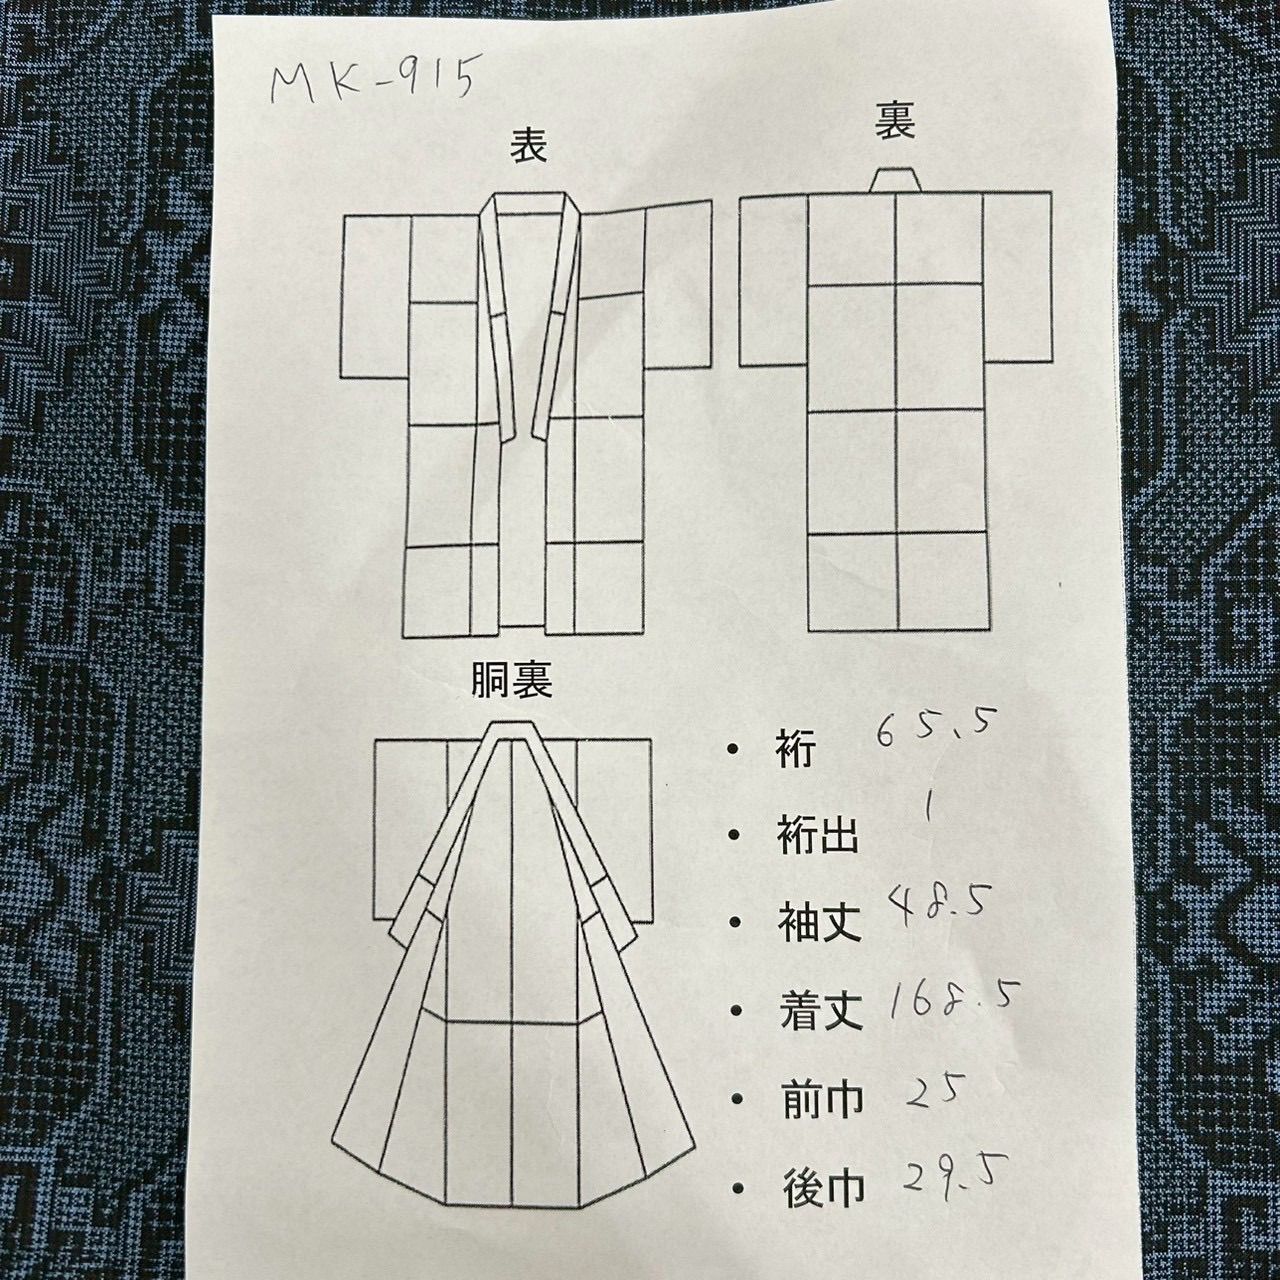 MK-915
表
裏
胴裏
・裄 65.5
・裄出 1
・袖丈 48.5
・着丈 168.5
・前巾 25
・後巾 29.5